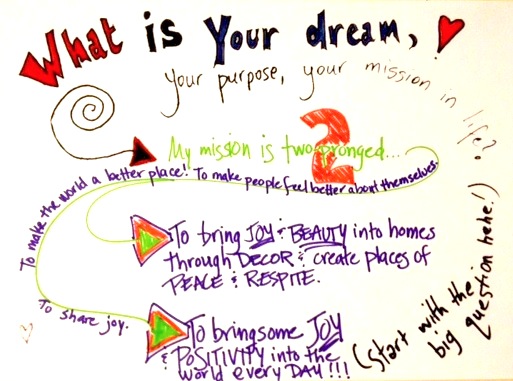 What is Your dream,
your purpose, your mission in life?
(start with the
big question hehe!)
My mission is two-pronged...
2
To make the world a better place! To make people feel better about themselves.
To share joy.
To bring JOY & BEAUTY into homes
through DECOR & create places of
PEACE & RESPITE.
To bring some JOY
& POSITIVITY into the
world every DAY!!!